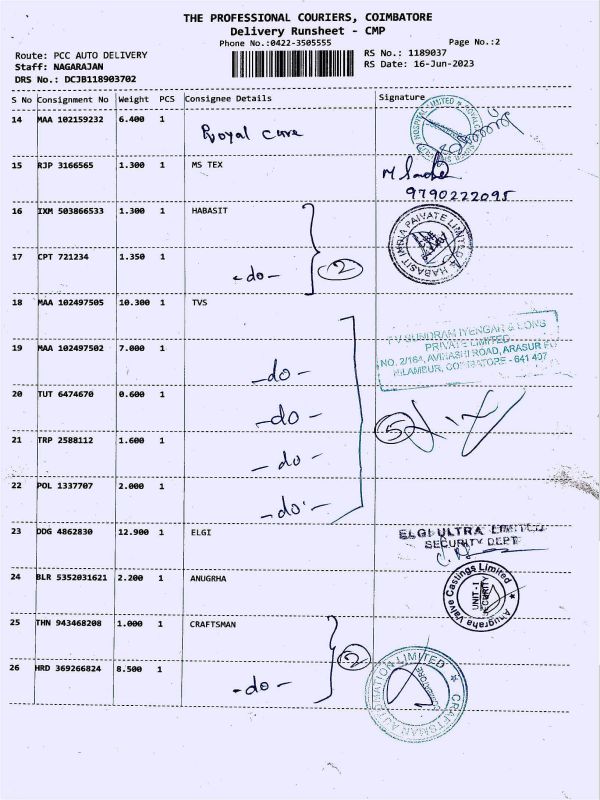 THE PROFESSIONAL COURIERS, COIMBATORE
Delivery Runsheet - CMP
Phone No.:0422-3505555
Page No.:2
Route: PCC AUTO DELIVERY
RS No.: 1189037
Staff: NAGARAJAN
RS Date: 16-Jun-2023
DRS No.: DCJB118903702
S No Consignment No Weight PCS Consignee Details Signature
14 MAA 102159232 6.400 1 Royal Care
15 RJP 3166565 1.300 1 MS TEX
9790222095
16 IXM 503866533 1.300 1 HABASIT
HABASIT INDIA PRIVATE LIMITED
17 CPT 721234 1.350 1 -do- 2
18 MAA 102497505 10.300 1 TVS
T V SUNDRAM IYENGAR & SONS
PRIVATE LIMITED
19 MAA 102497502 7.000 1 -do-
NO. 2/164, AVINASHI ROAD, ARASUR PO
NILAMBUR, COIMBATORE - 641 407
20 TUT 6474670 0.600 1 -do- 5
21 TRP 2588112 1.600 1 -do-
22 POL 1337707 2.000 1 -do-
23 DDG 4862830 12.900 1 ELGI
ELGI ULTRA LIMITED
SECURITY DEPT
24 BLR 5352031621 2.200 1 ANUGRHA
Anugraha Valve Castings Limited
UNIT-I
SECURITY
25 THN 943468208 1.000 1 CRAFTSMAN
26 HRD 369266824 8.500 1 -do- 2
CRAFTSMAN AUTOMATION LIMITED
COIMBATORE